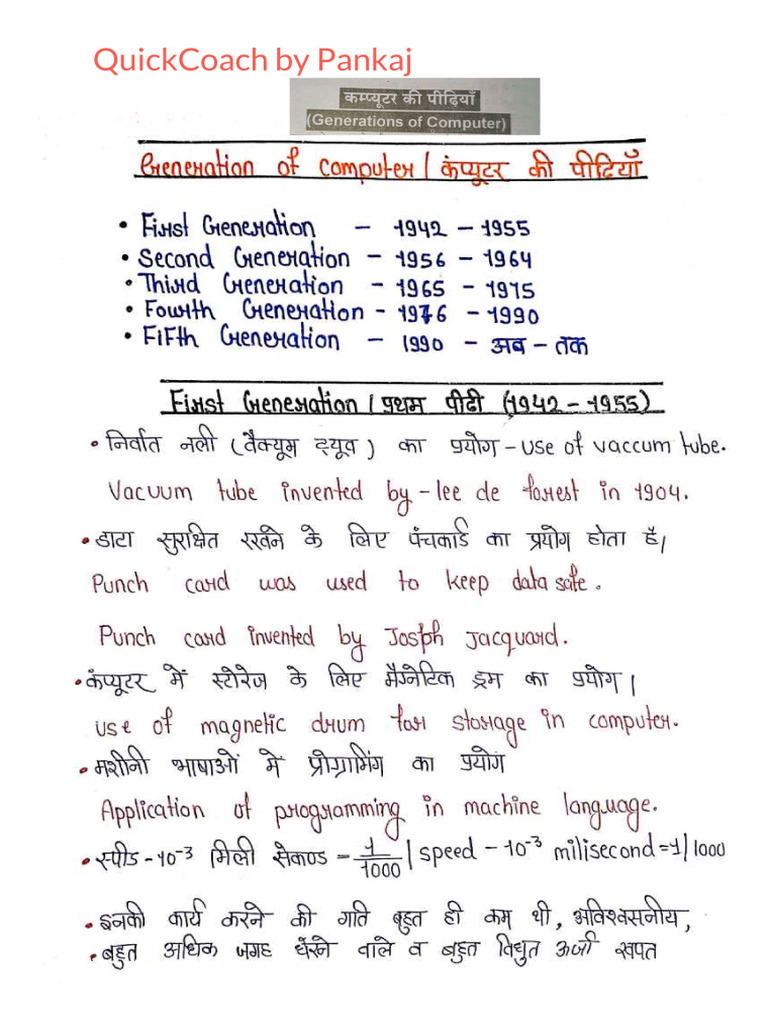 QuickCoach by Pankaj
कम्प्यूटर की पीढ़ियाँ
(Generations of Computer)
Generation of computer / कंप्यूटर की पीढियाँ
• First Generation – 1942 – 1955
• Second Generation – 1956 – 1964
• Third Generation – 1965 – 1975
• Fourth Generation - 1976 – 1990
• Fifth Generation – 1990 – अब – तक
First Generation / प्रथम पीढी (1942 – 1955)
• निर्वात नली (वैक्यूम ट्यूब) का प्रयोग – use of vaccum tube.
Vacuum tube invented by – lee de forest in 1904.
• डाटा सुरक्षित रखने के लिए पंचकार्ड का प्रयोग होता है।
Punch card was used to keep data safe.
Punch card invented by Josph Jacquard.
• कंप्यूटर में स्टोरेज के लिए मैग्नेटिक ड्रम का प्रयोग।
use of magnetic drum for storage in computer.
• मशीनी भाषाओं में प्रोग्रामिंग का प्रयोग
Application of programming in machine language.
• स्पीड – 10⁻³ मिली सेकण्ड – 1/1000 | speed – 10⁻³ milisecond = 1/1000
• इनकी कार्य करने की गति बहुत ही कम थी, अविश्वसनीय,
• बहुत अधिक जगह घेरने वाले व बहुत विधुत ऊर्जा खपत